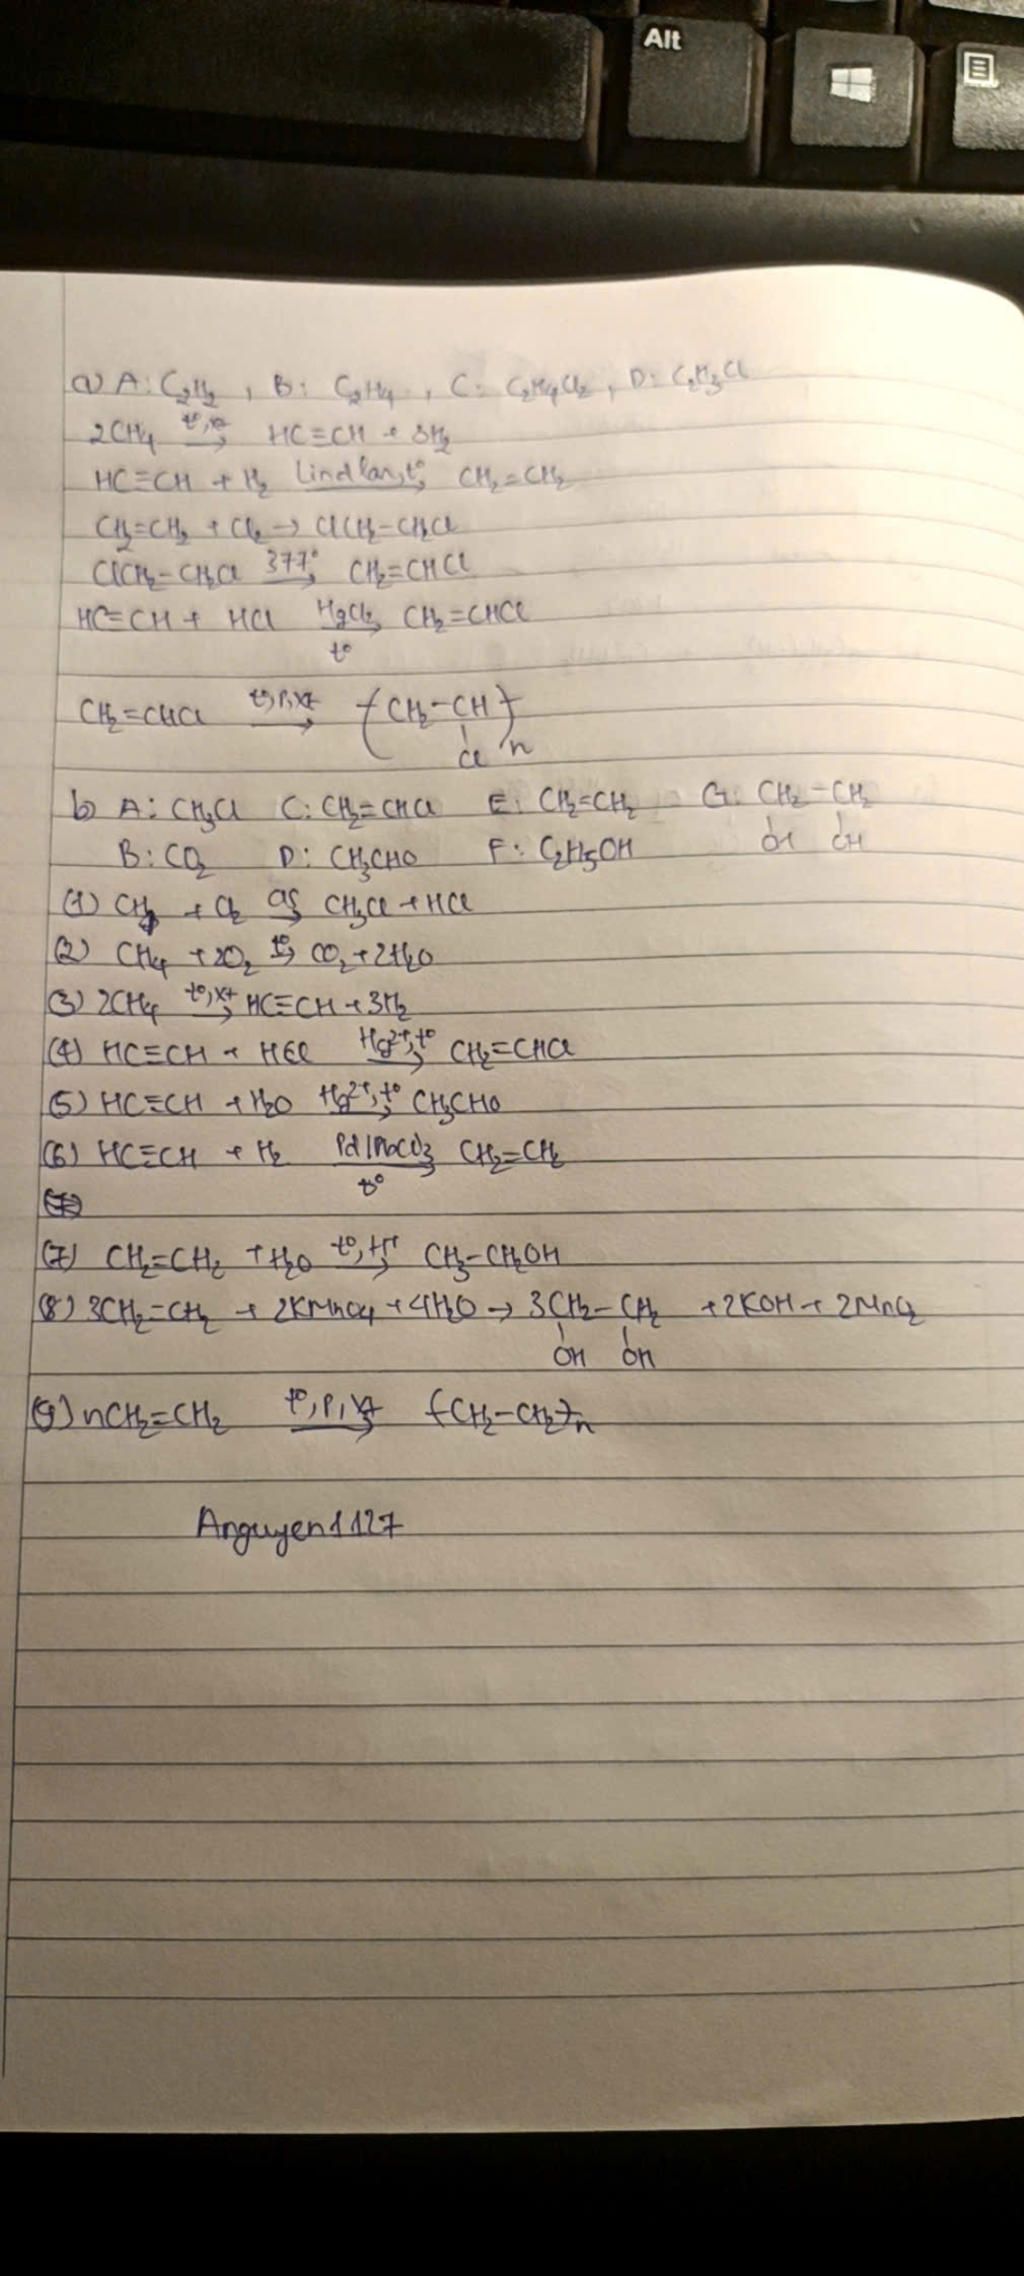 Alt
a) A: C₂H₂, B: C₂H₄, C: C₂H₄Cl₂, D: C₂H₃Cl
2CH₄ —t°, xt→ HC≡CH + 3H₂
HC≡CH + H₂ —Lindlar, t°→ CH₂=CH₂
CH₂=CH₂ + Cl₂ → ClCH₂-CH₂Cl
ClCH₂-CH₂Cl —377°→ CH₂=CHCl
HC≡CH + HCl —HgCl₂, t°→ CH₂=CHCl
CH₂=CHCl —t°, P, xt→ (CH₂-CH(Cl))n
b) A: CH₃Cl C: CH₂=CHCl E: CH₂=CH₂ G: CH₂(OH)-CH₂(OH)
B: CO₂ D: CH₃CHO F: C₂H₅OH
(1) CH₄ + Cl₂ —as→ CH₃Cl + HCl
(2) CH₄ + 2O₂ —t°→ CO₂ + 2H₂O
(3) 2CH₄ —t°, xt→ HC≡CH + 3H₂
(4) HC≡CH + HCl —Hg²⁺, t°→ CH₂=CHCl
(5) HC≡CH + H₂O —Hg²⁺, t°→ CH₃CHO
(6) HC≡CH + H₂ —Pd/PbCO₃, t°→ CH₂=CH₂
(7) CH₂=CH₂ + H₂O —t°, H⁺→ CH₃-CH₂OH
(8) 3CH₂=CH₂ + 2KMnO₄ + 4H₂O → 3CH₂(OH)-CH₂(OH) + 2KOH + 2MnO₂
(9) nCH₂=CH₂ —t°, P, xt→ (CH₂-CH₂)n
Anguyen1127